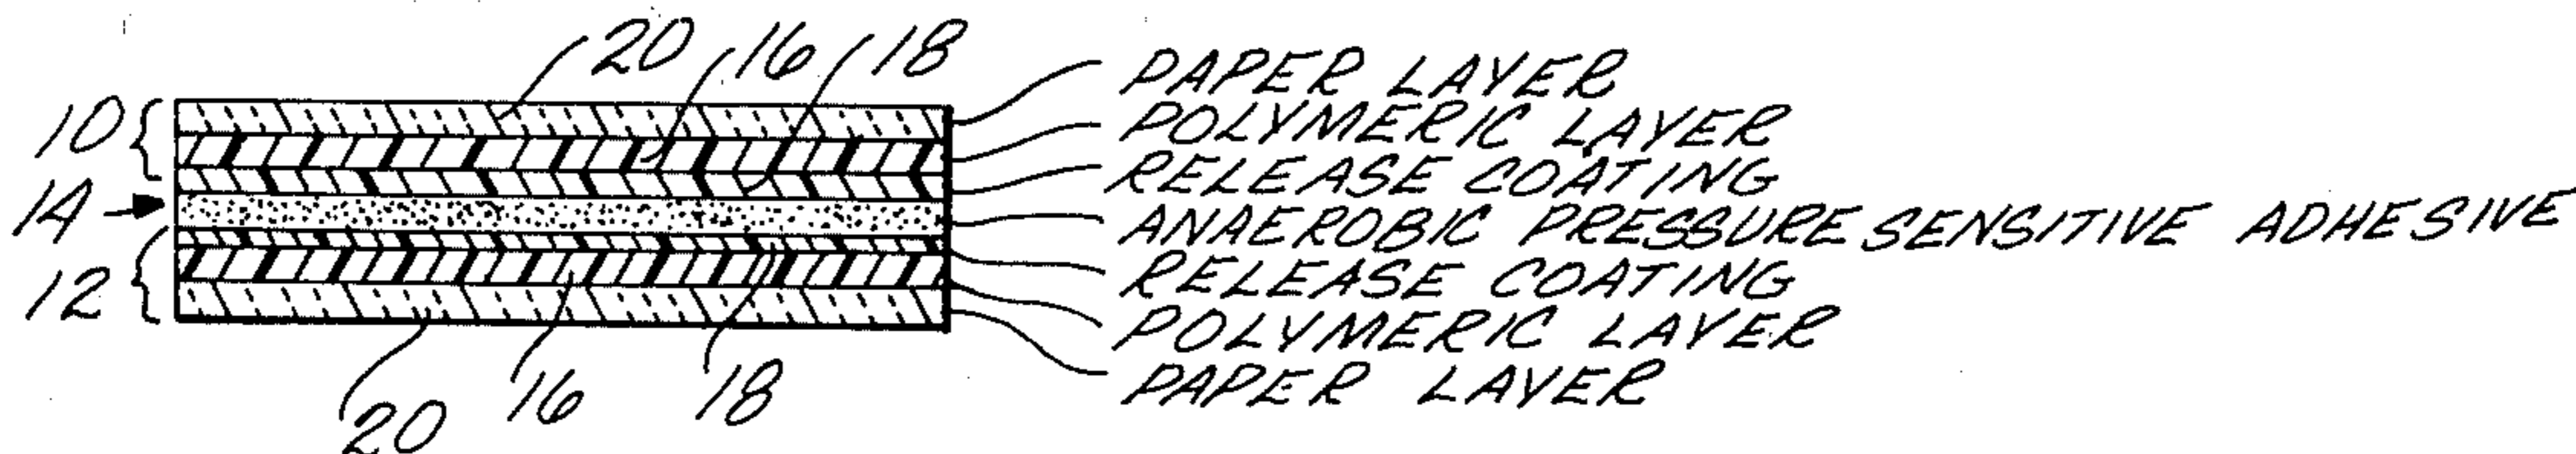 20 16 18
PAPER LAYER
10
POLYMERIC LAYER
RELEASE COATING
14
ANAEROBIC PRESSURE SENSITIVE ADHESIVE
12
RELEASE COATING
POLYMERIC LAYER
PAPER LAYER
20 16 18